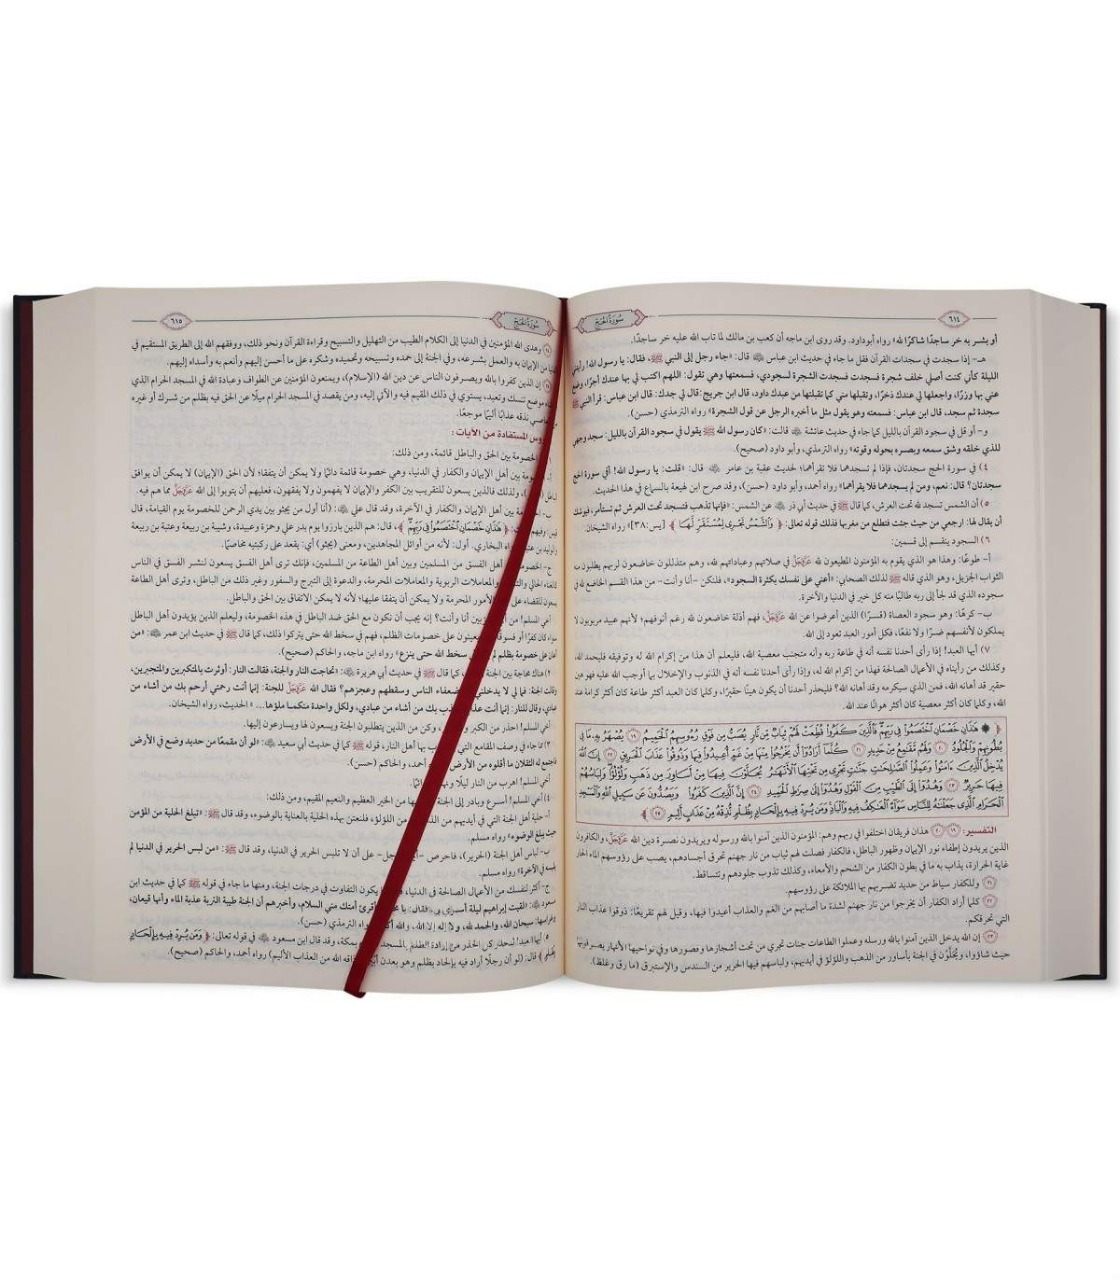 ٦١٤
سُورَةُ الحَجِّ
أو بشر به خر ساجدًا شاكرًا لله» رواه أبوداود. وقد روى ابن ماجه أن كعب بن مالك لما تاب الله عليه خر ساجدًا.
هـ- إذا سجدت في سجدات القرآن فقل ما جاء في حديث ابن عباس قال: «جاء رجل إلى النبي ﷺ، فقال: يا رسول الله! رأيتني
الليلة كأني كنت أصلي خلف شجرة فسجدت فسجدت الشجرة لسجودي، فسمعتها وهي تقول: اللهم اكتب لي بها عندك أجرًا، وضع
عني بها وزرًا، واجعلها لي عندك ذخرًا، وتقبلها مني كما تقبلتها من عبدك داود، قال ابن جريج: قال لي جدك: قال ابن عباس: فقرأ النبي ﷺ
سجدة ثم سجد، قال ابن عباس: فسمعته وهو يقول مثل ما أخبره الرجل عن قول الشجرة» رواه الترمذي (حسن).
و- أو قل في سجود القرآن بالليل كما جاء في حديث عائشة قالت: «كان رسول الله ﷺ يقول في سجود القرآن بالليل: سجد وجهي
للذي خلقه وشق سمعه وبصره بحوله وقوته» رواه الترمذي، وأبو داود (صحيح).
٤) في سورة الحج سجدتان، فإذا لم تسجدهما فلا تقرأهما؛ لحديث عقبة بن عامر قال: «قلت: يا رسول الله! أفي سورة الحج
سجدتان؟ قال: نعم، ومن لم يسجدهما فلا يقرأهما» رواه أحمد، وأبو داود (حسن)، وقد صرح ابن لهيعة بالسماع في هذا الحديث.
٥) أن الشمس تسجد لله تحت العرش، كما قال ﷺ في حديث أبي ذر عن الشمس: «فإنها تذهب فتسجد تحت العرش ثم تستأمر، فيوشك
أن يقال لها: ارجعي من حيث جئت فتطلع من مغربها فذلك قوله تعالى: ﴿ وَالشَّمْسُ تَجْرِي لِمُسْتَقَرٍّ لَّهَا ﴾ [يس:٣٨]» رواه الشيخان.
٦) السجود ينقسم إلى قسمين:
أ- طوعًا: وهذا هو الذي يقوم به المؤمنون المطيعون لله عَزَّوَجَلَّ في صلاتهم وعباداتهم لله، وهم متذللون خاضعون لربهم يطلبون منه
الثواب الجزيل، وهو الذي قاله ﷺ لذلك الصحابي: «أعني على نفسك بكثرة السجود»، فلنكن -أنا وأنت- من هذا القسم الخاضع لله في
سجوده الذي قد لجأ إلى ربه طالبًا منه كل خير في الدنيا والآخرة.
ب- كرهًا: وهو سجود العصاة (قسرًا) الذين أعرضوا عن الله عَزَّوَجَلَّ، فهم أذلة خاضعون لله رغم أنوفهم؛ لأنهم عبيد مربوبون لا
يملكون لأنفسهم ضرًا ولا نفعًا، فكل أمور العبد تعود إلى الله.
٧) أيها العبد! إذا رأى أحدنا نفسه أنه في طاعة ربه وأنه متجنب معصية الله، فليعلم أن هذا من إكرام الله له وتوفيقه فليحمد الله،
وكذلك من رأيناه في الأعمال الصالحة فهذا من إكرام الله له، وإذا رأى أحدنا نفسه أنه في الذنوب والإخلال بما أوجب الله عليه فهو مهين
حقير قد أهانه الله، فمن الذي سيكرمه وقد أهانه الله؟ فليحذر أحدنا أن يكون هينًا حقيرًا، وكلما كان العبد أكثر طاعة كان أكثر كرامة عند
الله، وكلما كان أكثر معصية كان أكثر هوانًا عند الله.
﴿ ۞ هَٰذَانِ خَصْمَانِ اخْتَصَمُوا فِي رَبِّهِمْ فَالَّذِينَ كَفَرُوا قُطِّعَتْ لَهُمْ ثِيَابٌ مِّن نَّارٍ يُصَبُّ مِن فَوْقِ رُءُوسِهِمُ الْحَمِيمُ ١٩ يُصْهَرُ بِهِ مَا فِي
بُطُونِهِمْ وَالْجُلُودُ ٢٠ وَلَهُم مَّقَامِعُ مِنْ حَدِيدٍ ٢١ كُلَّمَا أَرَادُوا أَن يَخْرُجُوا مِنْهَا مِنْ غَمٍّ أُعِيدُوا فِيهَا وَذُوقُوا عَذَابَ الْحَرِيقِ ٢٢ إِنَّ اللَّهَ
يُدْخِلُ الَّذِينَ آمَنُوا وَعَمِلُوا الصَّالِحَاتِ جَنَّاتٍ تَجْرِي مِن تَحْتِهَا الْأَنْهَارُ يُحَلَّوْنَ فِيهَا مِنْ أَسَاوِرَ مِن ذَهَبٍ وَلُؤْلُؤًا وَلِبَاسُهُمْ
فِيهَا حَرِيرٌ ٢٣ وَهُدُوا إِلَى الطَّيِّبِ مِنَ الْقَوْلِ وَهُدُوا إِلَىٰ صِرَاطِ الْحَمِيدِ ٢٤ إِنَّ الَّذِينَ كَفَرُوا وَيَصُدُّونَ عَن سَبِيلِ اللَّهِ وَالْمَسْجِدِ
الْحَرَامِ الَّذِي جَعَلْنَاهُ لِلنَّاسِ سَوَاءً الْعَاكِفُ فِيهِ وَالْبَادِ وَمَن يُرِدْ فِيهِ بِإِلْحَادٍ بِظُلْمٍ نُّذِقْهُ مِنْ عَذَابٍ أَلِيمٍ ٢٥ ﴾
التفسير: ١٩ ٢٠ هذان فريقان اختلفوا في ربهم وهم: المؤمنون الذين آمنوا بالله ورسوله ويريدون نصرة دين الله عَزَّوَجَلَّ، والكافرون
الذين يريدون إطفاء نور الإيمان وظهور الباطل، فالكفار فصلت لهم ثياب من نار جهنم تحرق أجسادهم، يصب على رؤوسهم الماء الحار
غاية الحرارة، يذاب به ما في بطون الكفار من الشحم والأمعاء، وكذلك تذوب جلودهم وتتساقط.
٢١ وللكفار سياط من حديد تضربهم بها الملائكة على رؤوسهم.
٢٢ كلما أراد الكفار أن يخرجوا من نار جهنم لشدة ما أصابهم من الغم والعذاب أعيدوا فيها، وقيل لهم تقريعًا: ذوقوا عذاب النار
التي تحرقكم.
٢٣ إن الله يدخل الذين آمنوا بالله ورسله وعملوا الطاعات جنات تجري من تحت أشجارها وقصورها وفي نواحيها الأنهار يصرفونها
حيث شاؤوا، ويُحَلَّون في الجنة بأساور من الذهب واللؤلؤ في أيديهم، ولباسهم فيها الحرير من السندس والإستبرق (ما رق وغلظ).
سُورَةُ الحَجِّ
٦١٥
٢٤ وهدى الله المؤمنين في الدنيا إلى الكلام الطيب من التهليل والتسبيح وقراءة القرآن ونحو ذلك، ووفقهم الله إلى الطريق المستقيم في
من الإيمان به والعمل بشرعه، وفي الجنة إلى حمده وتسبيحه وتمجيده وشكره على ما أحسن إليهم وأنعم به وأسداه إليهم.
٢٥ إن الذين كفروا بالله ويصرفون الناس عن دين الله (الإسلام)، ويمنعون المؤمنين عن الطواف وعبادة الله في المسجد الحرام الذي
موضع تنسك وتعبد، يستوي في ذلك المقيم فيه والآتي إليه، ومن يقصد في المسجد الحرام ميلًا عن الحق فيه بظلم من شرك أو غيره
نذقه عذابًا أليمًا موجعًا.
المستفادة من الآيات:
الخصومة بين الحق والباطل قائمة، ومن ذلك:
بين أهل الإيمان والكفار في الدنيا، وهي خصومة قائمة دائمًا ولا يمكن أن يتفقا؛ لأن الحق (الإيمان) لا يمكن أن يوافق
ولذلك فالذين يسعون للتقريب بين الكفر والإيمان لا يفهمون ولا يفقهون، فعليهم أن يتوبوا إلى الله عَزَّوَجَلَّ مما هم فيه.
بين أهل الإيمان والكفار في الآخرة، وقد قال علي: (أنا أول من يجثو بين يدي الرحمن للخصومة يوم القيامة، قال
﴿ هَٰذَانِ خَصْمَانِ اخْتَصَمُوا فِي رَبِّهِمْ ﴾، قال: هم الذين بارزوا يوم بدر علي وحمزة وعبيدة، وشيبة بن ربيعة وعتبة بن ربيعة
والوليد بن رواه البخاري. أول: لأنه من أوائل المجاهدين، ومعنى (يجثو) أي: يقعد على ركبتيه مخاصمًا.
أهل الفسق من المسلمين وبين أهل الطاعة من المسلمين، فإنك ترى أهل الفسق يسعون لنشر الفسق في الناس
والمعاملات الربوية والمعاملات المحرمة، والدعوة إلى التبرج والسفور وغير ذلك من الباطل، وترى أهل الطاعة
يسعون للقضاء على الأمور المحرمة ولا يمكن أن يتفقا عليها؛ لأنه لا يمكن الاتفاق بين الحق والباطل.
أخي المسلم! من أنا وأنت؟ إنه يجب أن نكون مع الحق ضد الباطل في هذه الخصومة، وليعلم الذين يؤيدون أهل الباطل
سواء كان كفرًا أو يعينون على خصومات الظلم، فهم في سخط الله حتى يتركوا ذلك، كما قال ﷺ في حديث ابن عمر: «من
أعان على خصومة بظلم سخط الله حتى ينزع» رواه ابن ماجه، والحاكم (صحيح).
٢) هناك محاجة بين الجنة كما قال ﷺ في حديث أبي هريرة: «تحاجت النار والجنة، فقالت النار: أوثرت بالمتكبرين والمتجبرين،
وقالت الجنة: فما لي لا يدخلني ضعفاء الناس وسقطهم وعجزهم؟ فقال الله عَزَّوَجَلَّ للجنة: إنما أنت رحمتي أرحم بك من أشاء من
عبادي، وقال للنار: إنما أنت بك من أشاء من عبادي، ولكل واحدة منكما ملؤها...» الحديث، رواه الشيخان.
أخي المسلم! احذر من الكبر وكن من الذين يتطلبون الجنة ويسعون لها ويسارعون إليها.
٣) مما جاء في وصف المقامع التي بها أهل النار، قوله ﷺ كما في حديث أبي سعيد: «لو أن مقمعًا من حديد وضع في الأرض
فاجتمع له الثقلان ما أقلوه من الأرض» أحمد، والحاكم (حسن).
أخي المسلم! اهرب من النار ليلًا ونهارًا
٤) أخي المسلم! أسرع وبادر إلى الجنة من الخير العظيم والنعيم المقيم، ومن ذلك:
أ- حلية أهل الجنة التي في أيديهم من اللؤلؤ، فلنعتن بهذه الحلية بالعناية بالوضوء، وقد قال ﷺ: «تبلغ الحلية من المؤمن
حيث يبلغ الوضوء» رواه مسلم.
ب- لباس أهل الجنة (الحرير)، فاحرص -أيها الرجل- على أن لا تلبس الحرير في الدنيا، وقد قال ﷺ: «من لبس الحرير في الدنيا لم
يلبسه في الآخرة» رواه مسلم.
ج- أكثر لنفسك من الأعمال الصالحة في الدنيا، يكون التفاوت في درجات الجنة، ومنها ما جاء في قوله ﷺ كما في حديث ابن
مسعود: «لقيت إبراهيم ليلة أسري بي، فقال: يا محمد، أقرئ أمتك مني السلام، وأخبرهم أن الجنة طيبة التربة عذبة الماء وأنها قيعان،
وغراسها: سبحان الله، والحمد لله، ولا إله إلا الله، والله أكبر» رواه الترمذي (حسن).
٥) أيها العبد! ليحذر كل الحذر من إرادة الظلم بمكة، وقد قال ابن مسعود في قوله تعالى: ﴿ وَمَن يُرِدْ فِيهِ بِإِلْحَادٍ
بِظُلْمٍ ﴾ قال: (لو أن رجلًا أراد فيه بإلحاد بظلم وهو بعدن أذاقه الله من العذاب الأليم) رواه أحمد، والحاكم (صحيح).